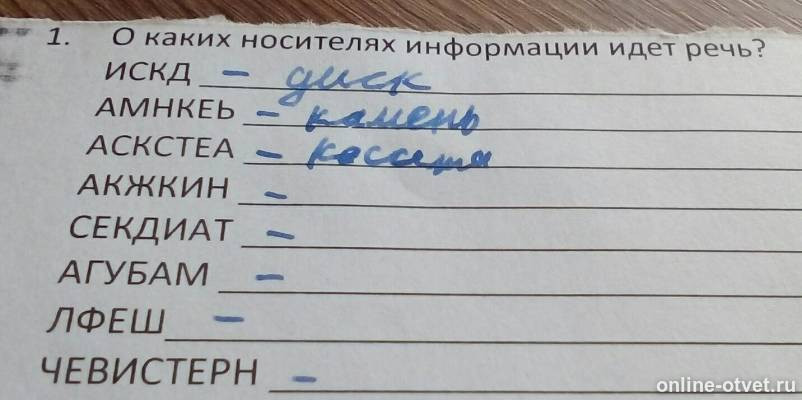 1. О каких носителях информации идет речь?
ИСКД – диск
АМНКЕЬ – камень
АСКСТЕА – кассета
АКЖКИН –
СЕКДИАТ –
АГУБАМ –
ЛФЕШ –
ЧЕВИСТЕРН –
online-otvet.ru